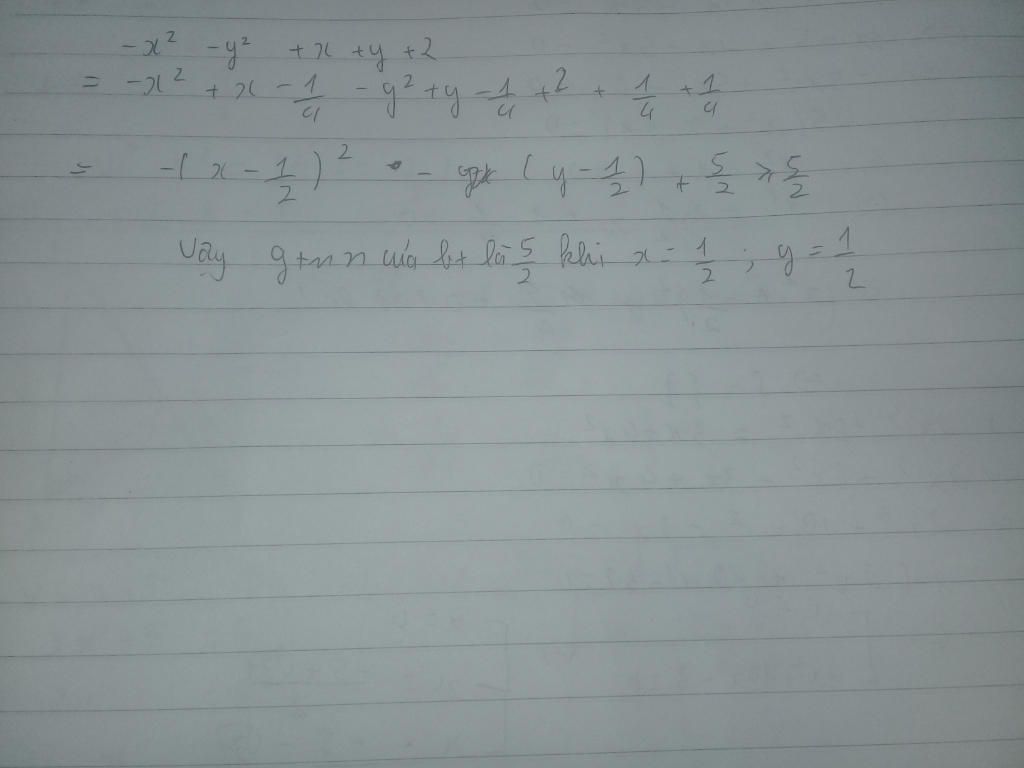 -x² -y² +x +y +2
= -x² + x - 1/4 - y² + y - 1/4 + 2 + 1/4 + 1/4
= -(x - 1/2)² - (y - 1/2) + 5/2 ≥ 5/2
Vậy gtnn của bt là 5/2 khi x = 1/2 ; y = 1/2